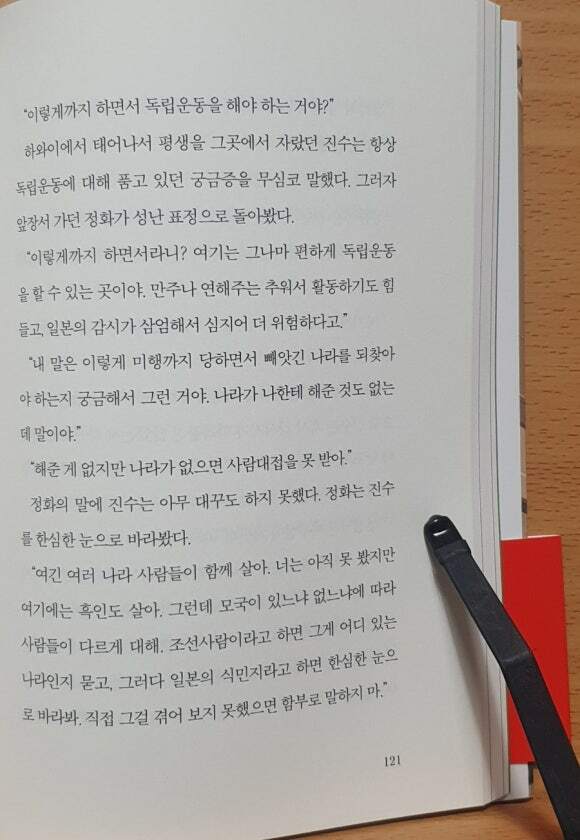 “이렇게까지 하면서 독립운동을 해야 하는 거야?”
하와이에서 태어나서 평생을 그곳에서 자랐던 진수는 항상
독립운동에 대해 품고 있던 궁금증을 무심코 말했다. 그러자
앞장서 가던 정화가 성난 표정으로 돌아봤다.
“이렇게까지 하면서라니? 여기는 그나마 편하게 독립운동
을 할 수 있는 곳이야. 만주나 연해주는 추워서 활동하기도 힘
들고, 일본의 감시가 삼엄해서 심지어 더 위험하다고.”
“내 말은 이렇게 미행까지 당하면서 빼앗긴 나라를 되찾아
야 하는지 궁금해서 그런 거야. 나라가 나한테 해준 것도 없는
데 말이야.”
“해준 게 없지만 나라가 없으면 사람대접을 못 받아.”
정화의 말에 진수는 아무 대꾸도 하지 못했다. 정화는 진수
를 한심한 눈으로 바라봤다.
“여긴 여러 나라 사람들이 함께 살아. 너는 아직 못 봤지만
여기에는 흑인도 살아. 그런데 모국이 있느냐 없느냐에 따라
사람들이 다르게 대해. 조선사람이라고 하면 그게 어디 있는
나라인지 묻고, 그러다 일본의 식민지라고 하면 한심한 눈으
로 바라봐. 직접 그걸 겪어 보지 못했으면 함부로 말하지 마.”
121